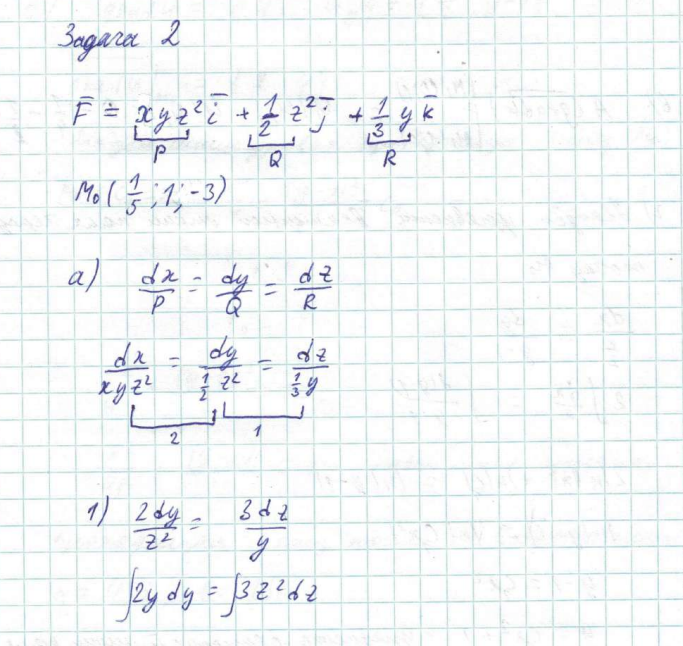 Задача 2
F̄ = xyz² ī + 1/2 z² j̄ + 1/3 y k̄
P Q R
M₀ (1/5 ; 1 ; -3)
а) dx/P = dy/Q = dz/R
dx/xyz² = dy/(1/2 z²) = dz/(1/3 y)
2 1
1) 2dy/z² = 3dz/y
∫2y dy = ∫3z² dz